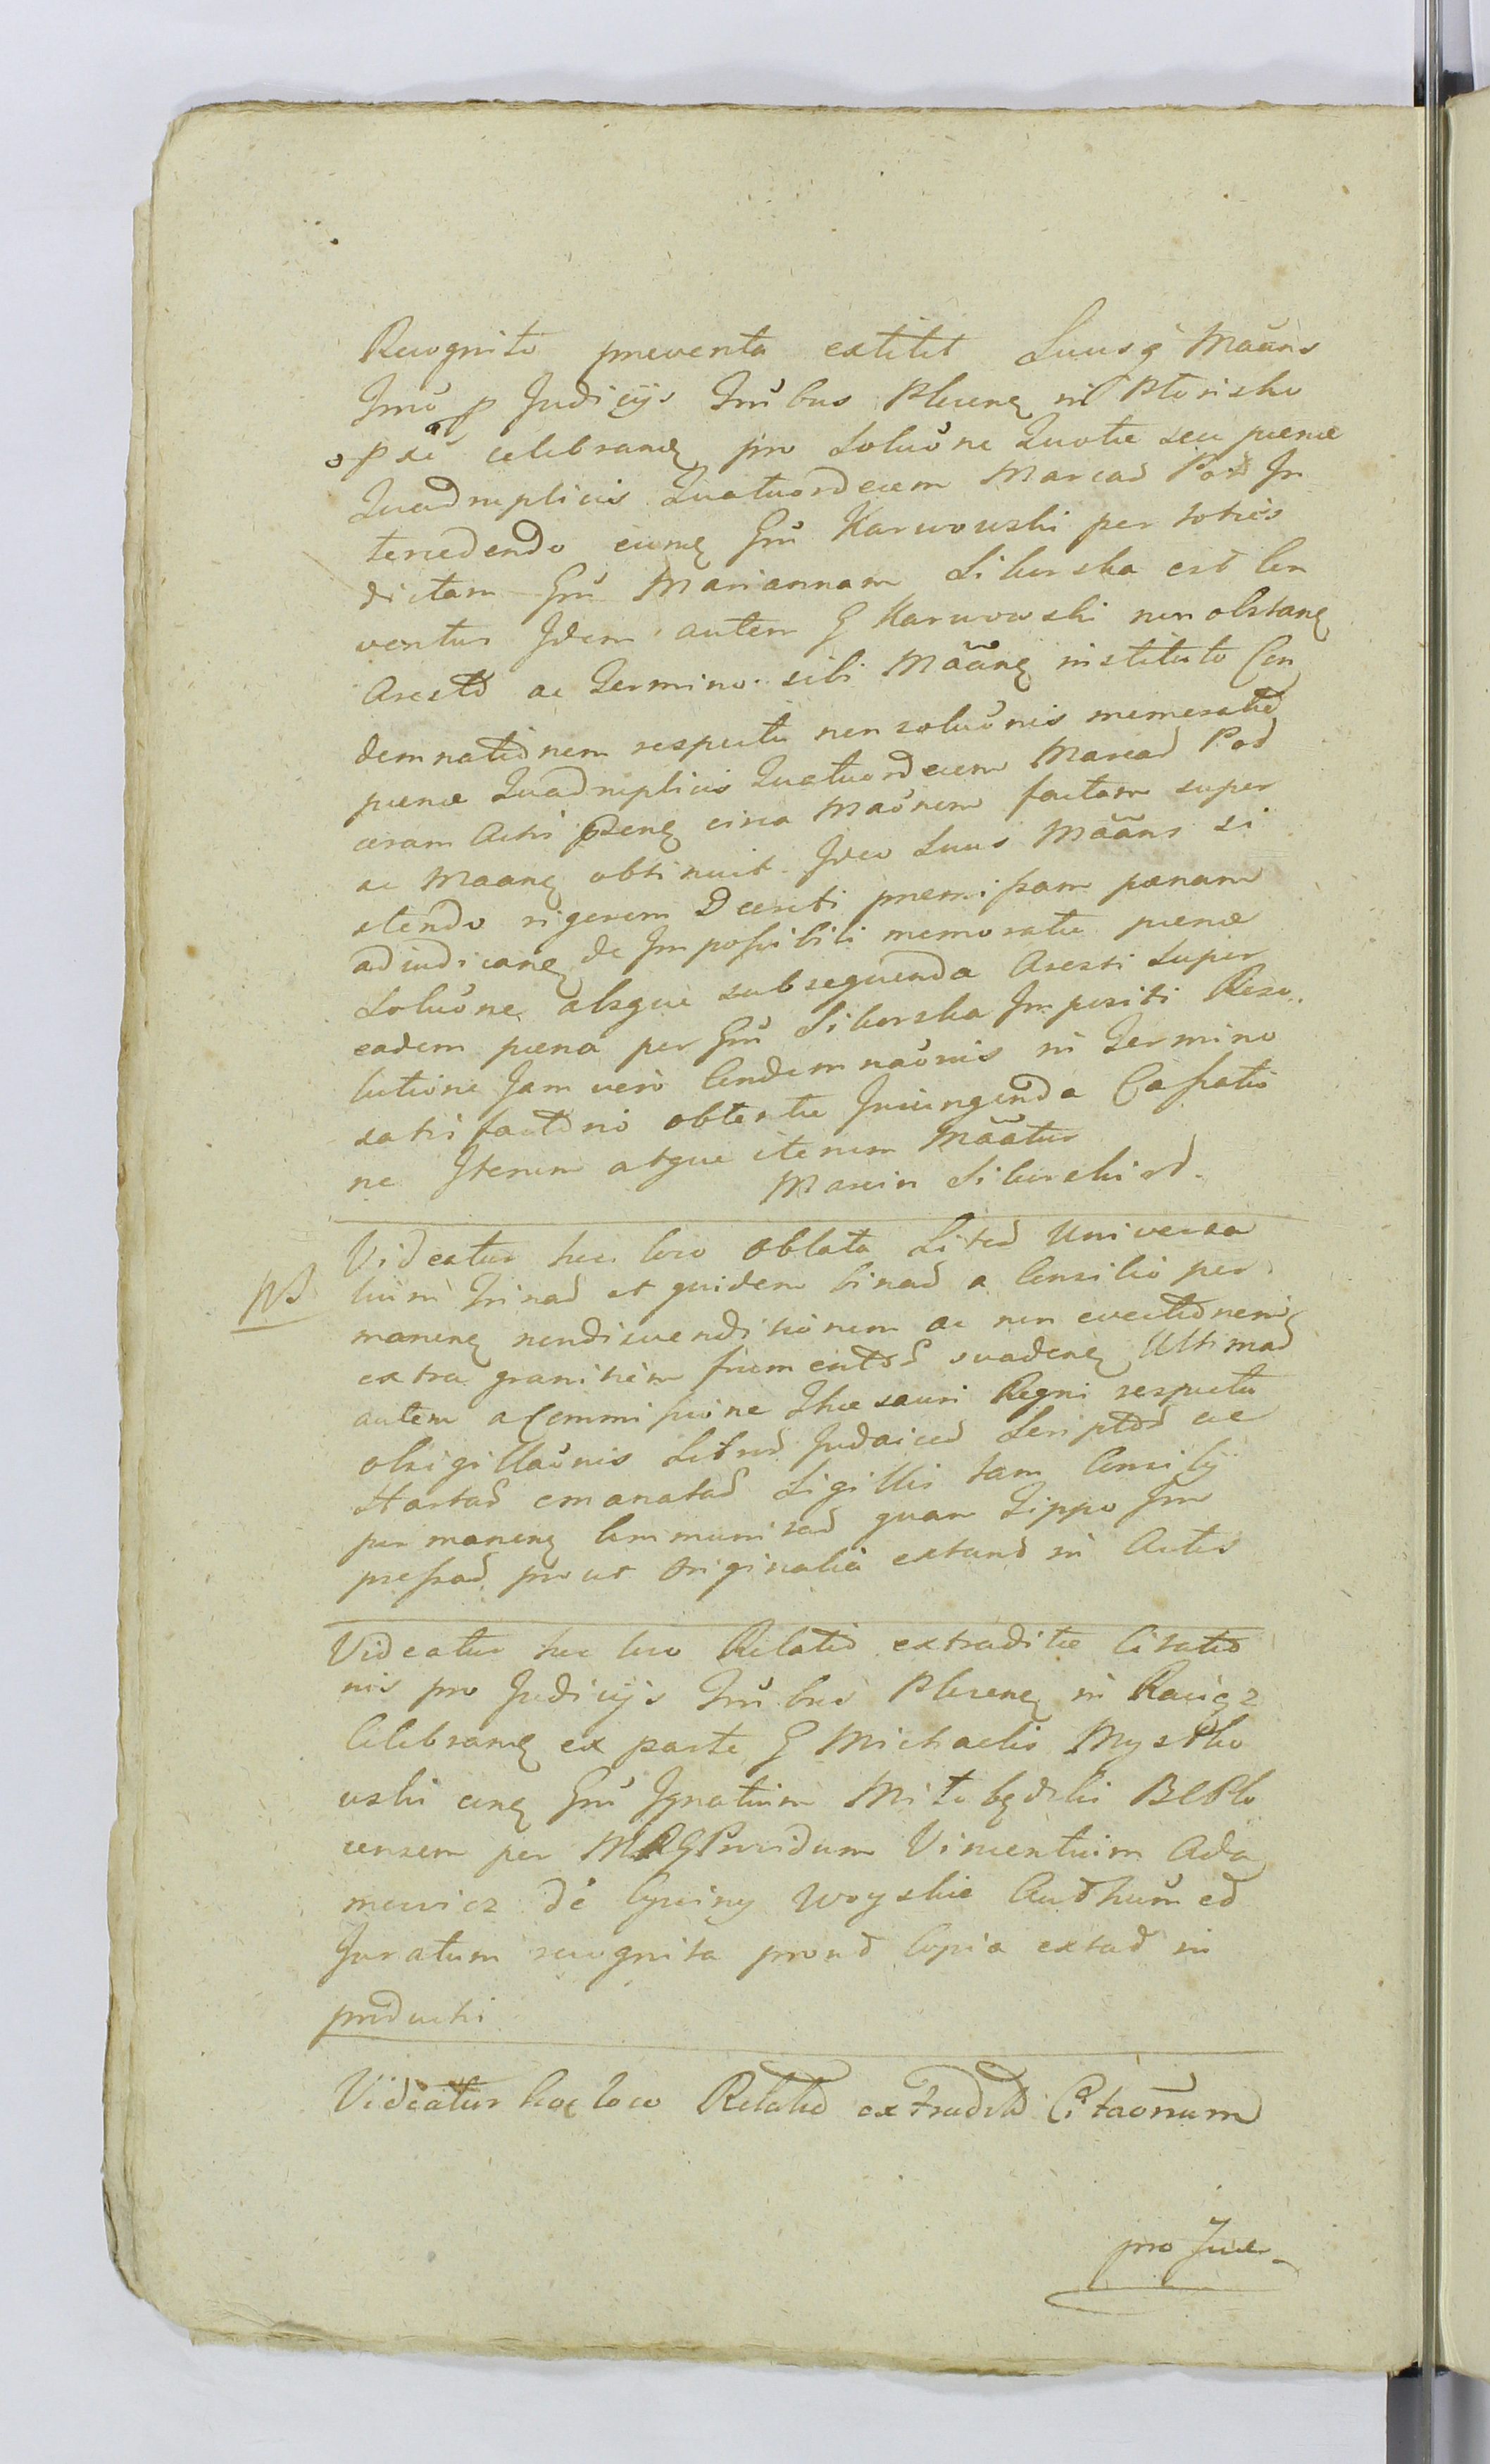 Recognito preventa extitit Suusq Maãns
Imo p Judicijs Trũbus Plocenȩ in Płońsku
celebranȩ pro Soluõne Quotæ seu pœnæ
Quadruplicis Quatuordecem Marcad Pod In
tercedendo cumȩ Grũ Karwowski per toties
dictam Grũ Mariannam Siborska est Con
ventus Idem autem G Karwowski non obstanȩ
Aresto ac Termino sibi Mããnȩ instituto Con
demnationem respectu non soluõnis memoratæ
pœnæ Quadruplicis Quatuordecem Marcad Pod
coram Actis pȩnȩ circa Maõnem factam super
ac Maanȩ obtinuit Ideo Suus Mããns si
stendo rigorem Decreti premissam pœnam
adiudicanȩ de Impossibili memoratæ pœnæ
Soluõne absque subsequenda Aresti super
eadem pœna per Grũ Siborska Impositi Reso
lutione Jam vero Condemnaõnis in Termino
satisfactõnis obtentæ Iniungenda Cassatio
ne Iterum atque iterum Mããtur
Marcin Siborski rd.
Videatur hoc loco Oblata Literd Universa
NB
lium Trinad et quidem binad a Consilio per
manenȩ nondivenditionem ac non evectionem
extra granitiem frumentod suadenȩ Ultimad
autem a Commissione Thesauri Regni respectu
obsigillaõnis Librod Judaicod Scriptod ac
Hartad emanatad Sigillis tam Consilij
permanenȩ communitad quam Tippo Im
pressad prout Originalia extand in Actis
Videatur hoc loco Relatio extraditæ Citatio
nis pro Judicijs Trũbus Plocenȩ in Raciąz
Celebranȩ ex parte G Michaelis Mystko
wski conȩ Grũ Ignatium Miłobędzki BCPlo
censem per MRGProvidum Vincentium Ada
mowicz de woyskie Authum ed
Juratum recognita proud Copia extad in
producti
Videatur hoc loco Relatio extradit Citaõnum
pro Jud